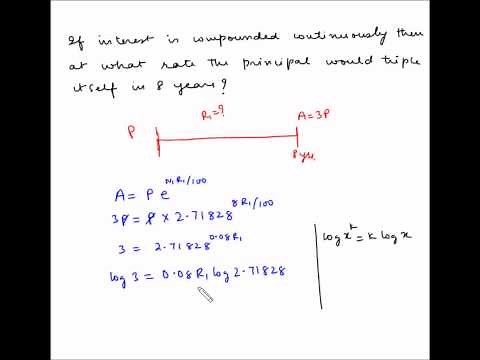 If interest is compounded continuously then
at what rate the principal would triple
itself in 8 years?
R₁=?
A=3P
P
8 yrs
A = P e^N₁R₁/100
3P = P × 2.71828^8R₁/100
3 = 2.71828^0.08R₁
log x^k = k log x
log 3 = 0.08R₁ log 2.71828